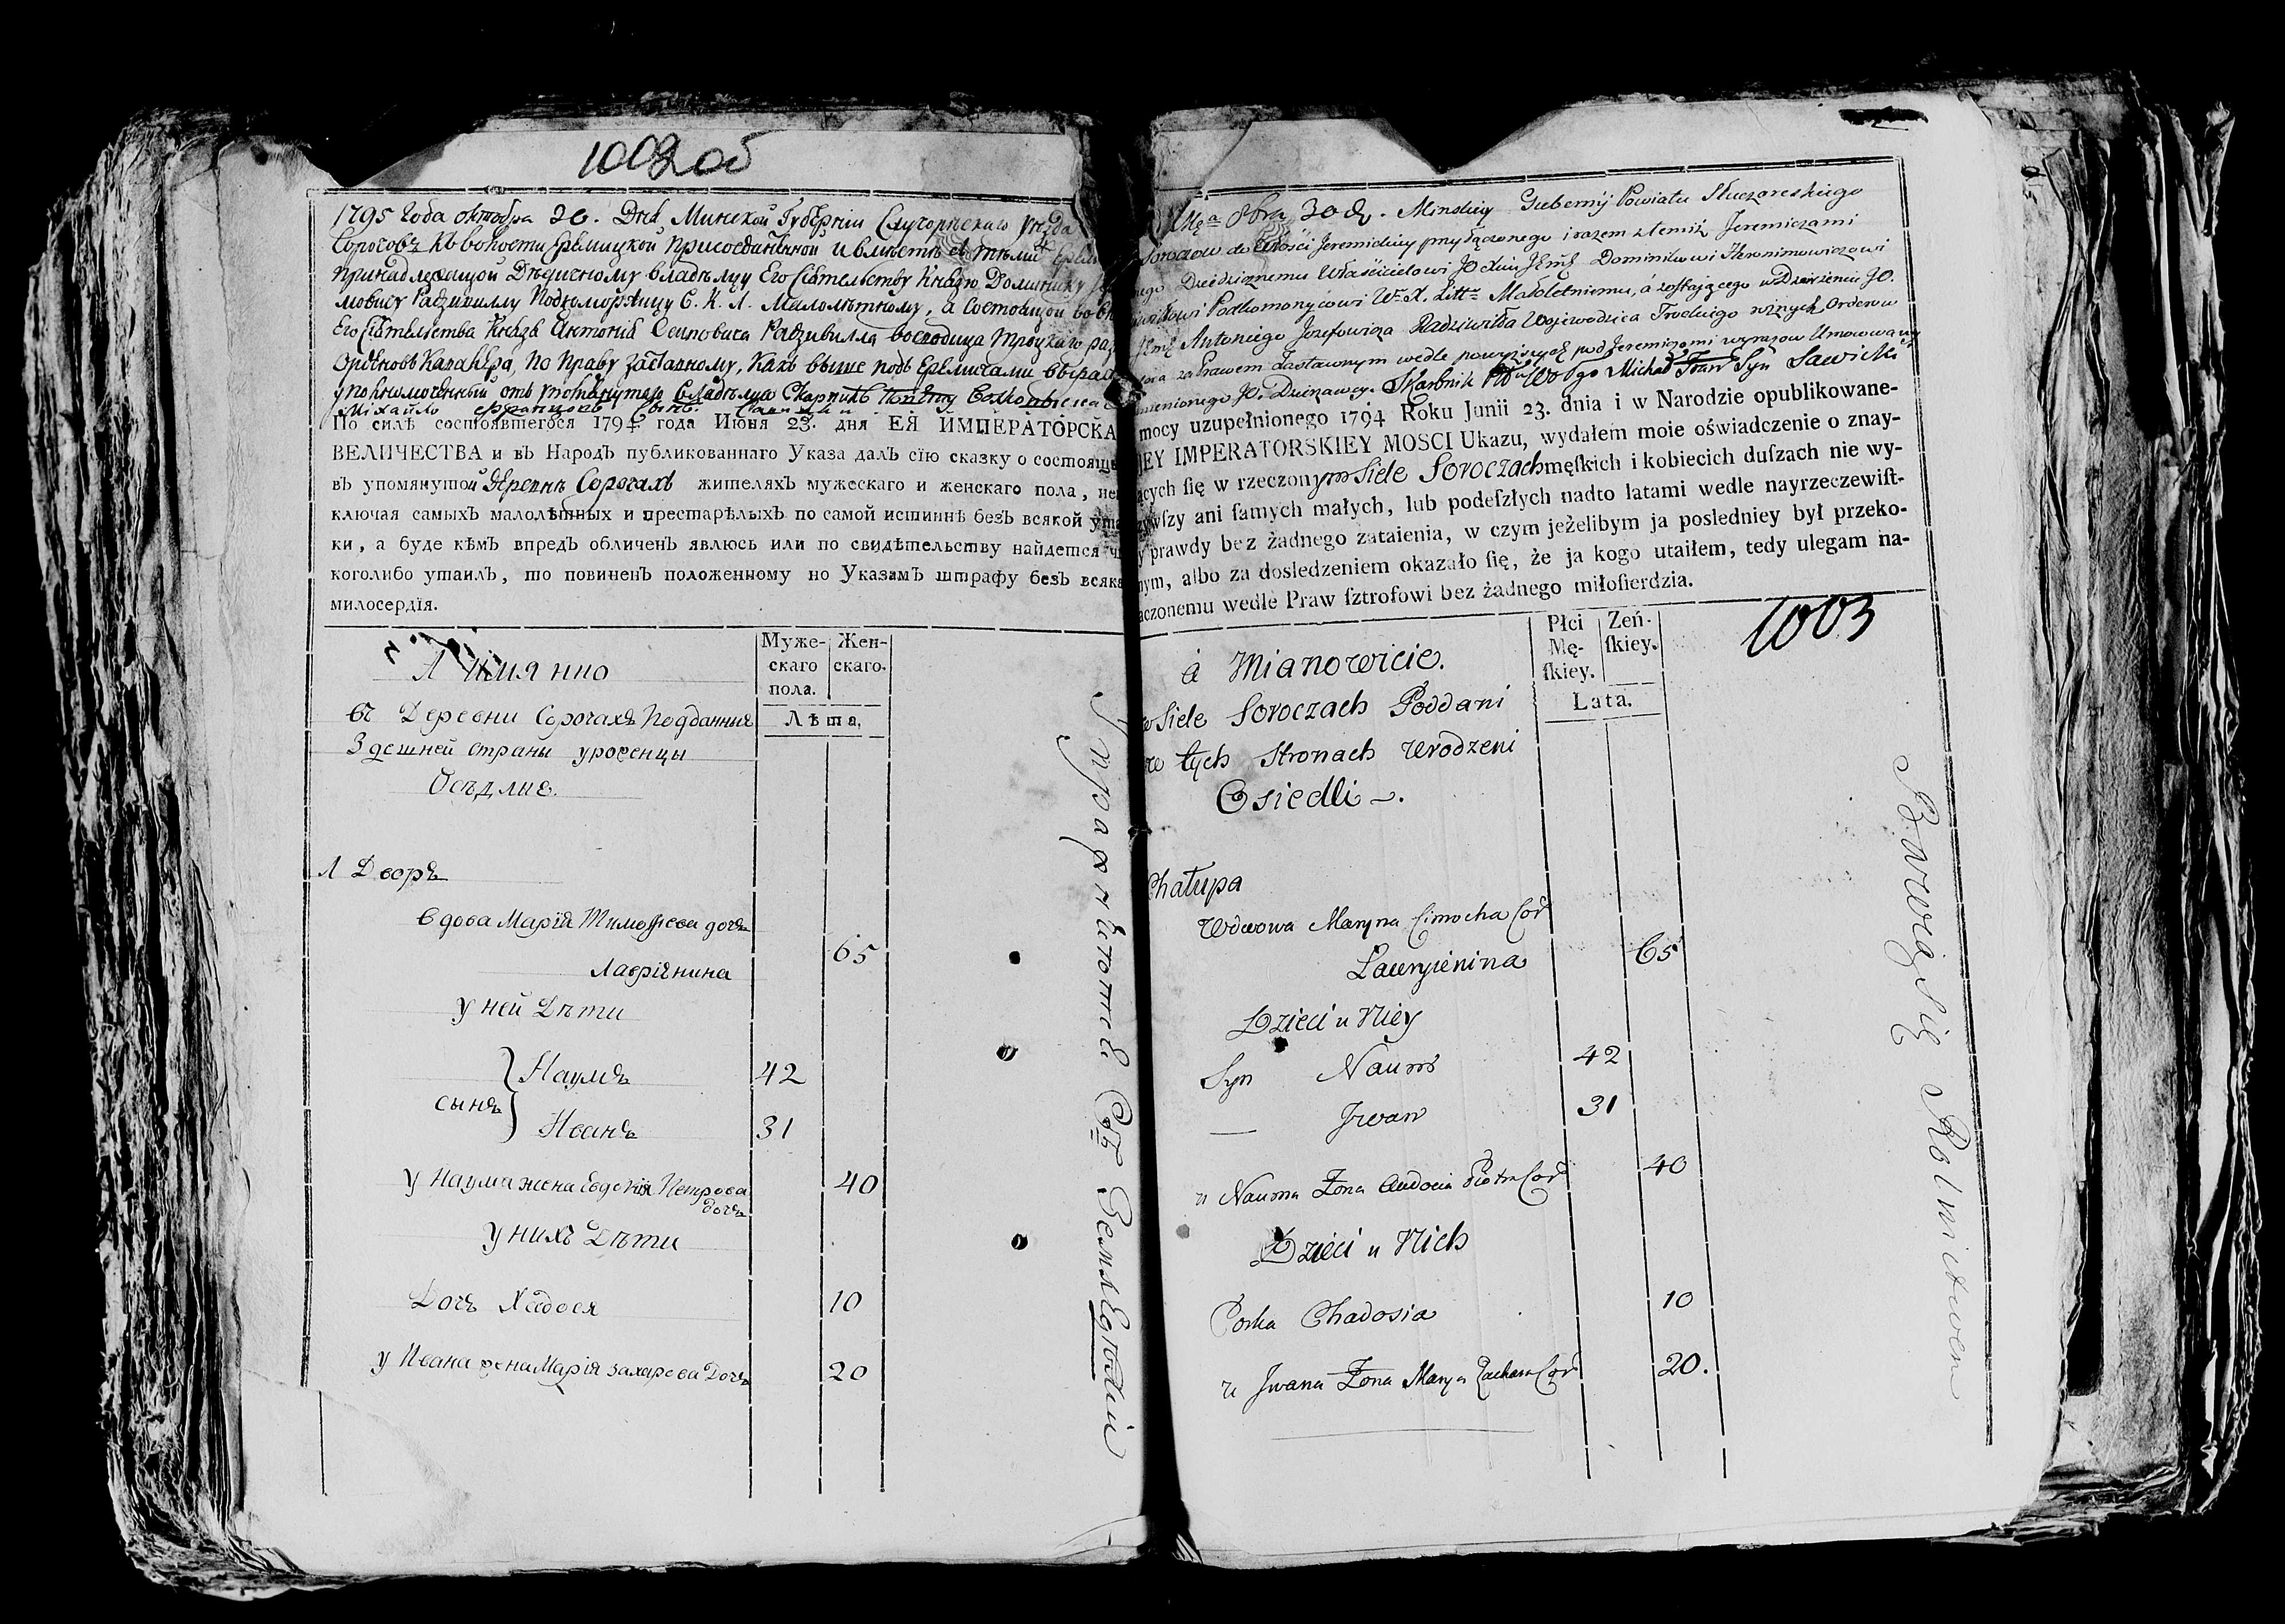 1002 об
1795 Года октября 20. Дня Минской Губерніи Слуцорѣцкаго уѣзда
Сорочовъ къ волости Еремицкой присоединенной и вместѣ съ тѣми
принадлежащой Дѣдичному владѣлцу Его Сіятельству Князю Доминику
Радзивиллу Подкоморжицу С. К. Л. Малолѣтному, а состоящой во
Его Сіятельства Князя Антонія Осиповича Радзивилла воеводица Троцкаго
Орденовъ Кавалѣра, по праву заставному, какъ выше подъ Еремичами
уполномоченный отъ
Михайло Францовъ сынъ Савицки
По силѣ состоявшегося 1794 года Июня 23. дня ЕЯ ИМПЕРАТОРСКА
ВЕЛИЧЕСТВА и въ Народъ публикованнаго Указа далъ сію сказку о состоящи
въ упомянутой Деревнѣ Сорочахъ жителяхъ мужескаго и женскаго пола,
ключая самыхъ малолѣтныхъ и престарѣлыхъ по самой истиннѣ безъ всякой ута
ки, а буде кѣмъ впредъ обличенъ явлюсь или по свидѣтельству найдется
коголибо утаилъ, то повиненъ положенному по Указамъ штрафу безъ всяка
милосердія.
А имянно
Муже-
скаго
пола.
Жен-
скаго.
Лѣта.
въ Деревни Сорочахъ Подданныя
Здешней страны уроженцы
Осѣдлие.
1 Дворъ
вдова Марія Тимофѣева дочь
Лаврѣнина 65
у ней Дѣти
сынъ } Наумъ 42
Иванъ 31
у Наума жена Евдокія Петрова
дочь 40
у нихъ Дѣти
Дочь Хадося 10
у Ивана жена Марія Захарова Дочь 20
Упражняются Въ Земледѣлии
8bra 30 d. Minskiey Gubernij Powiatu
Soroczow do Włości Jeremickiey przyłączonego i razem z temiż Jeremiczami
Dziedzicznemu Właścicielowi JO Xciu Jmć Dominikowi Hieronimowiczowi
Podkomorzycowi W. X. Litt. Małoletniemu, á zostającego w Dzierżeniu JO.
Antoniego Jozefowicza Radziwiłła Wojewodzica Trockiego rożnych Orderow
za Prawem Zastawnym wedle powyższych pod Jeremiczami wyrazow Umocowany
mienionego JO. Dzierżawcy. Skarbnik Michał Syn Sawicki
mocy uzupełnionego 1794 Roku Junii 23. dnia i w Narodzie opublikowane-
IEY IMPERATORSKIEY MOSCI Ukazu, wydałem moie oświadczenie o znay-
ących ſię w rzeczonym Siele Soroczach męſkich i kobiecich duſzach nie wy-
wſzy ani ſamych małych, lub podeſzłych nadto latami wedle nayrzeczewiſt-
y prawdy bez żadnego zataienia, w czym jeżelibym ja posledniey był przeko-
nym, albo za dosledzeniem okazało ſię, że ja kogo utaiłem, tedy ulegam na-
aczonemu wedle Praw ſztrofowi bez żadnego miłoſierdzia.
1003
á Mianowicie.
Płci
Mę-
ſkiey.
Zeń-
ſkiey.
Lata.
w Siele Soroczach Poddani
w tych Stronach Urodzeni
Osiedli.
Chałupa
Wdowa Maryna Cimocha Cor
65
Dzieci u Niey
Syn Naum 42
— Jwan 31
u Nauma Żona Audocia Piotra Cor 40
Dzieci u Nich
Corka Chadosia 10
u Jwana Żona Marya Zachara Cor 20.
Bawią się Rolnictwem